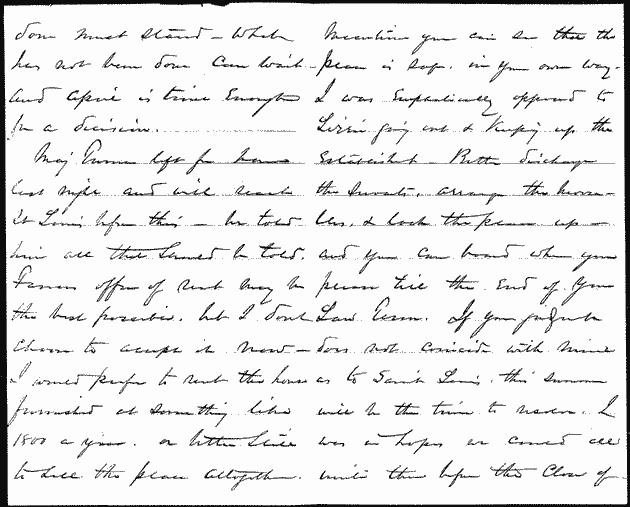 done must stand - What
has not been done can wait
and April is time enough
for a decision.
Maj Turner left for home
last night and will reach
St Louis before this - he told
him all that need be told.
offer of rent may be
the best possible, but I dont
choose to accept it now -
I would prefer to rent the house
furnished at something like
1800 a year. or better still
to sell the place altogether.
Meantime you can see that the
place is safe. in your own way.
I was emphatically opposed to
Lizzie going out & keeping up the
Establishment - Better discharge
the servants, arrange the
& lock the place up -
and you can board where you
please till the end of your
Law Term. If your judgment
does not coincide with mine
as to Saint Louis, this summer
will be the time to
was in hopes we could all
there before the close of